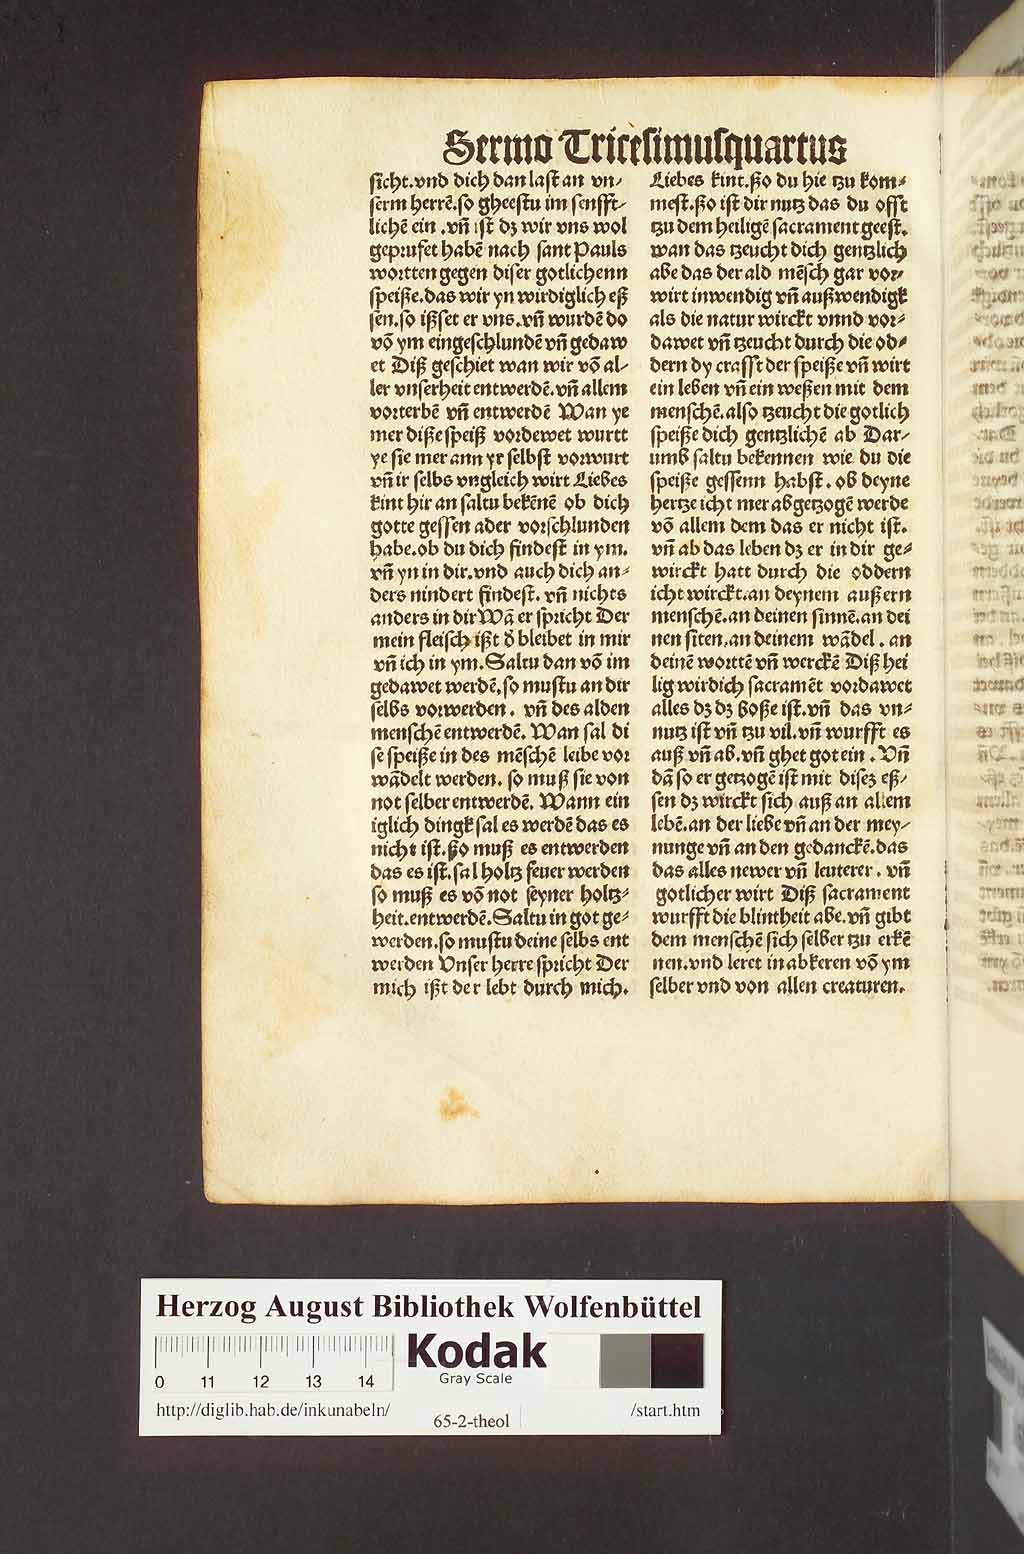 Sermo Tricesimusquartus
sicht.vnd dich dan last an vn/
serm herrē.so gheestu im senfft/
lichē ein .vñ ist dz wir vns wol
geprufet habē nach sant Pauls
wortten gegen diser gotlichenn
speiße.das wir yn wirdiglich eß
sen.so ißset er vns.vñ wurdē do
võ ym eingeschlundē vñ gedaw
et Diß geschiet wan wir võ al/
ler vnserheit entwerdē.vñ allem
vorterbē vñ entwerdē Wan ye
mer diße speiß vordewet wurtt
ye sie mer ann yr selbst vorwurt
vñ ir selbs vngleich wirt Liebes
kint hir an saltu bekēnē ob dich
gotte gessen ader vorschlunden
habe.ob du dich findest in ym.
vñ yn in dir.vnd auch dich an⸗
ders nindert findest. vñ nichts
anders in dir Wā er spricht Der
mein fleisch ißt ð bleibet in mir
vñ ich in ym.Saltu dan võ im
gedawet werdē.so mustu an dir
selbs vorwerden. vñ des alden
menschē entwerdē. Wan sal di
se speiße in des mēschē leibe vor
wādelt werden. so muß sie von
not selber entwerdē. Wann ein
iglich dingk sal es werdē das es
nicht ist.ßo muß es entwerden
das es ist.sal holtz feuer werden
so muß es võ not seyner holtz⸗
heit.entwerdē.Saltu in got ge⸗
werden.so mustu deine selbs ent
werden Vnser herre spricht Der
mich ißt der lebt durch mich.
Liebes kint.ßo du hie tzu kom⸗
mest.ßo ist dir nutz das du offt
tzu dem heiligē sacrament geest.
wan das tzeucht dich gentzlich
abe das der ald mēsch gar vor/
wirt inwendig vñ außwendigk
als die natur wirckt vnnd vor⸗
dawet vñ tzeucht durch die od⸗
dern dy crafft der speiße vñ wirt
ein leben vñ ein weßen mit dem
menschē.also tzeucht die gotlich
speiße dich gentzlichē ab Dar/
umb saltu bekennen wie du die
speiße gessenn habst. ob deyne
hertze icht mer abgetzogē werde
võ allem dem das er nicht ist.
vñ ab das leben dz er in dir ge⸗
wirckt hatt durch die oddern
icht wirckt.an deynem außern
menschē.an deinen sinnē.an dei
nen siten.an deinem wādel. an
deinē worttē vñ werckē Diß hei
lig wirdich sacramēt vordawet
alles dz dz boße ist.vñ das vn⸗
nutz ist vñ tzu vil.vñ wurfft es
auß vñ ab.vñ ghet got ein. Vñ
dā so er getzogē ist mit disez eß/
sen dz wirckt sich auß an allem
lebē.an der liebe vñ an der mey/
nunge vñ an den gedanckē.das
das alles newer vñ leuterer. vñ
gotlicher wirt Diß sacrament
wurfft die blintheit abe.vñ gibt
dem menschē sich selber tzu erkē
nen.vnd leret in abkeren võ ym
selber vnd von allen creaturen.
Herzog August Bibliothek Wolfenbüttel
0 11 12 13 14
Kodak
Gray Scale
http://diglib.hab.de/inkunabeln/ 65-2-theol /start.htm